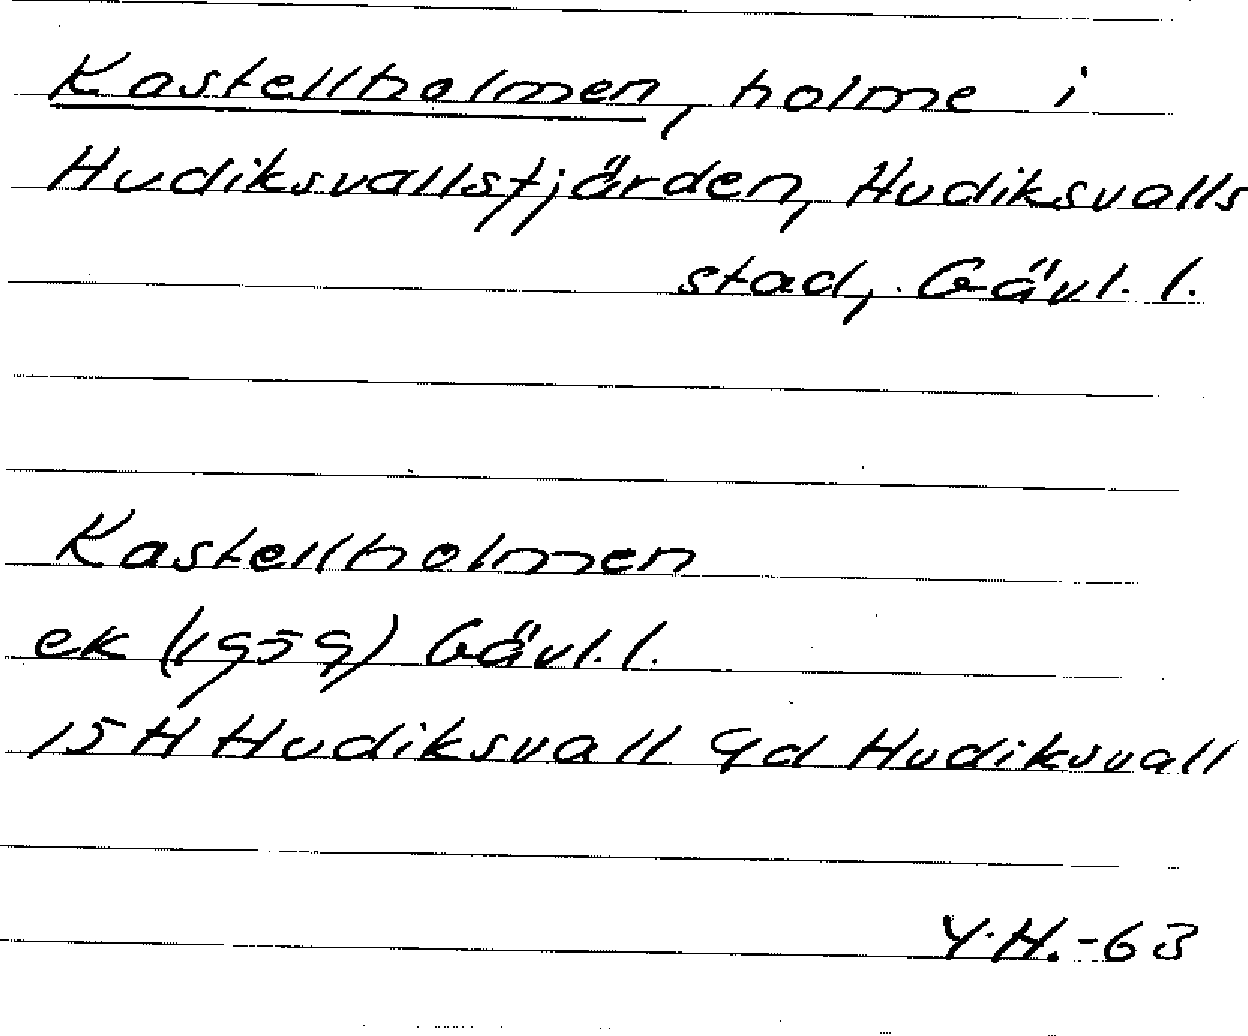 Kastellholmen, holme i
Hudiksvallsfjärden, Hudiksvalls
stad, Gävl. l.
Kastellholmen
ek (1959) Gävl. l.
15H Hudiksvall 9d Hudiksvall
Y.H.-63